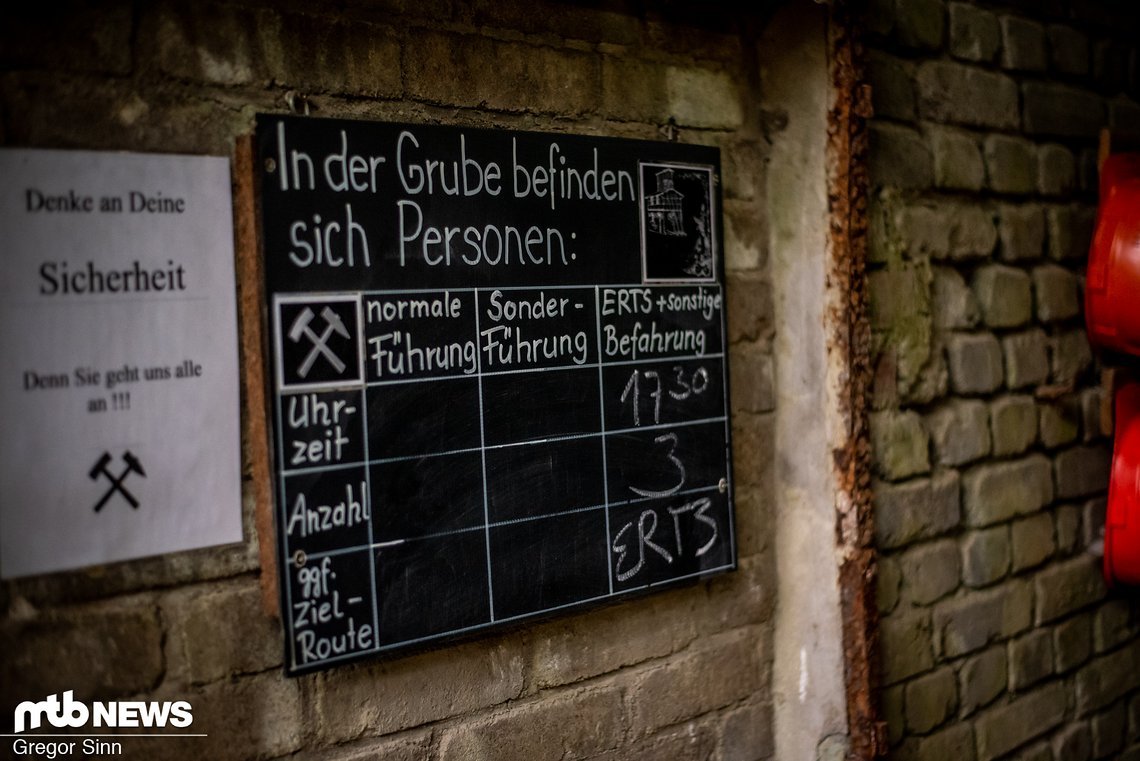 Denke an Deine
Sicherheit
Denn Sie geht uns alle
an !!!
In der Grube befinden
sich Personen:
normale
Führung
Sonder-
Führung
ERTS + sonstige
Befahrung
Uhr-
zeit
1730
Anzahl
3
ggf.
Ziel-
Route
ERTS
mtbNEWS
Gregor Sinn